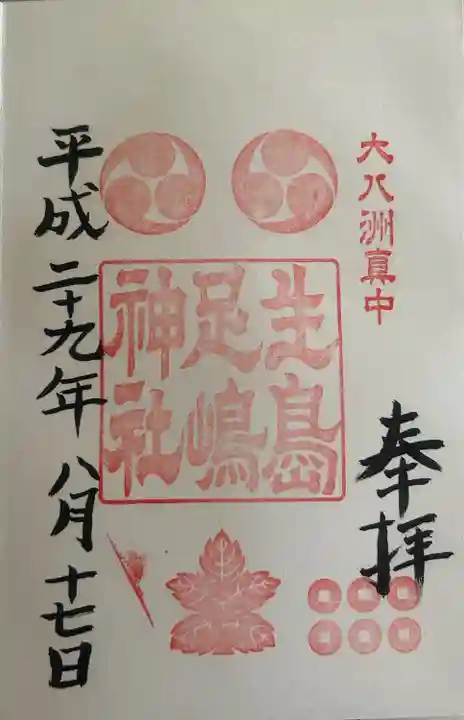 大八洲真中
奉拝
生島
足嶋
神社
平成二十九年八月十七日